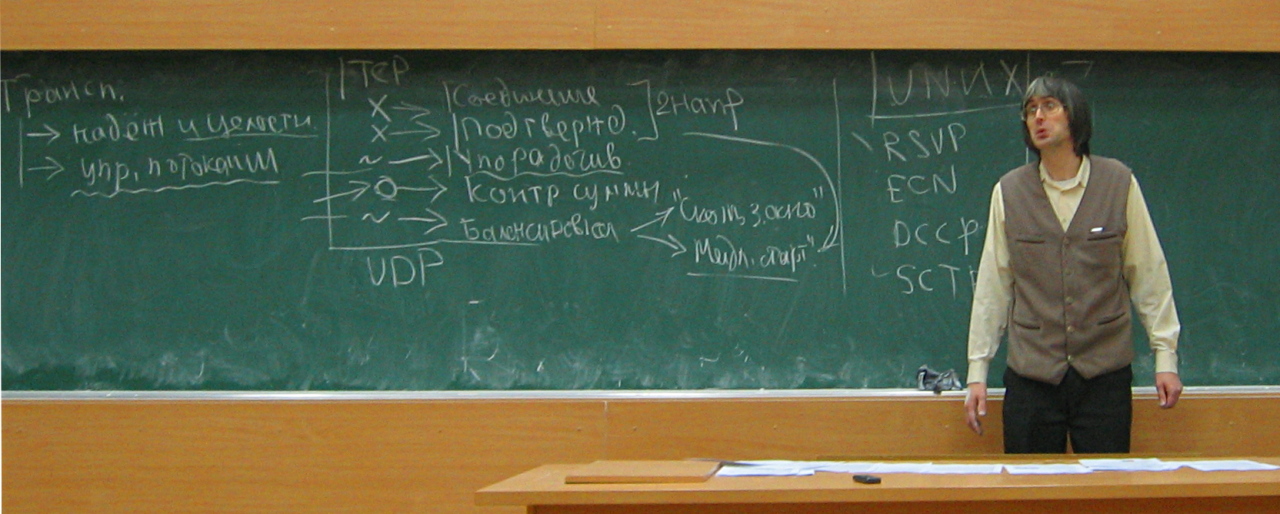 Трансп.
→ надёж и целостн.
→ упр. потоками
TCP
X → Соединение
X → Подтвержд.
] 2 напр
~ → Упорядочив.
→ O → Контр суммы
~ → Балансировка
"Скольз. окно"
"Медл. старт"
UDP
UNИX
RSVP
ECN
DCCP
SCTP